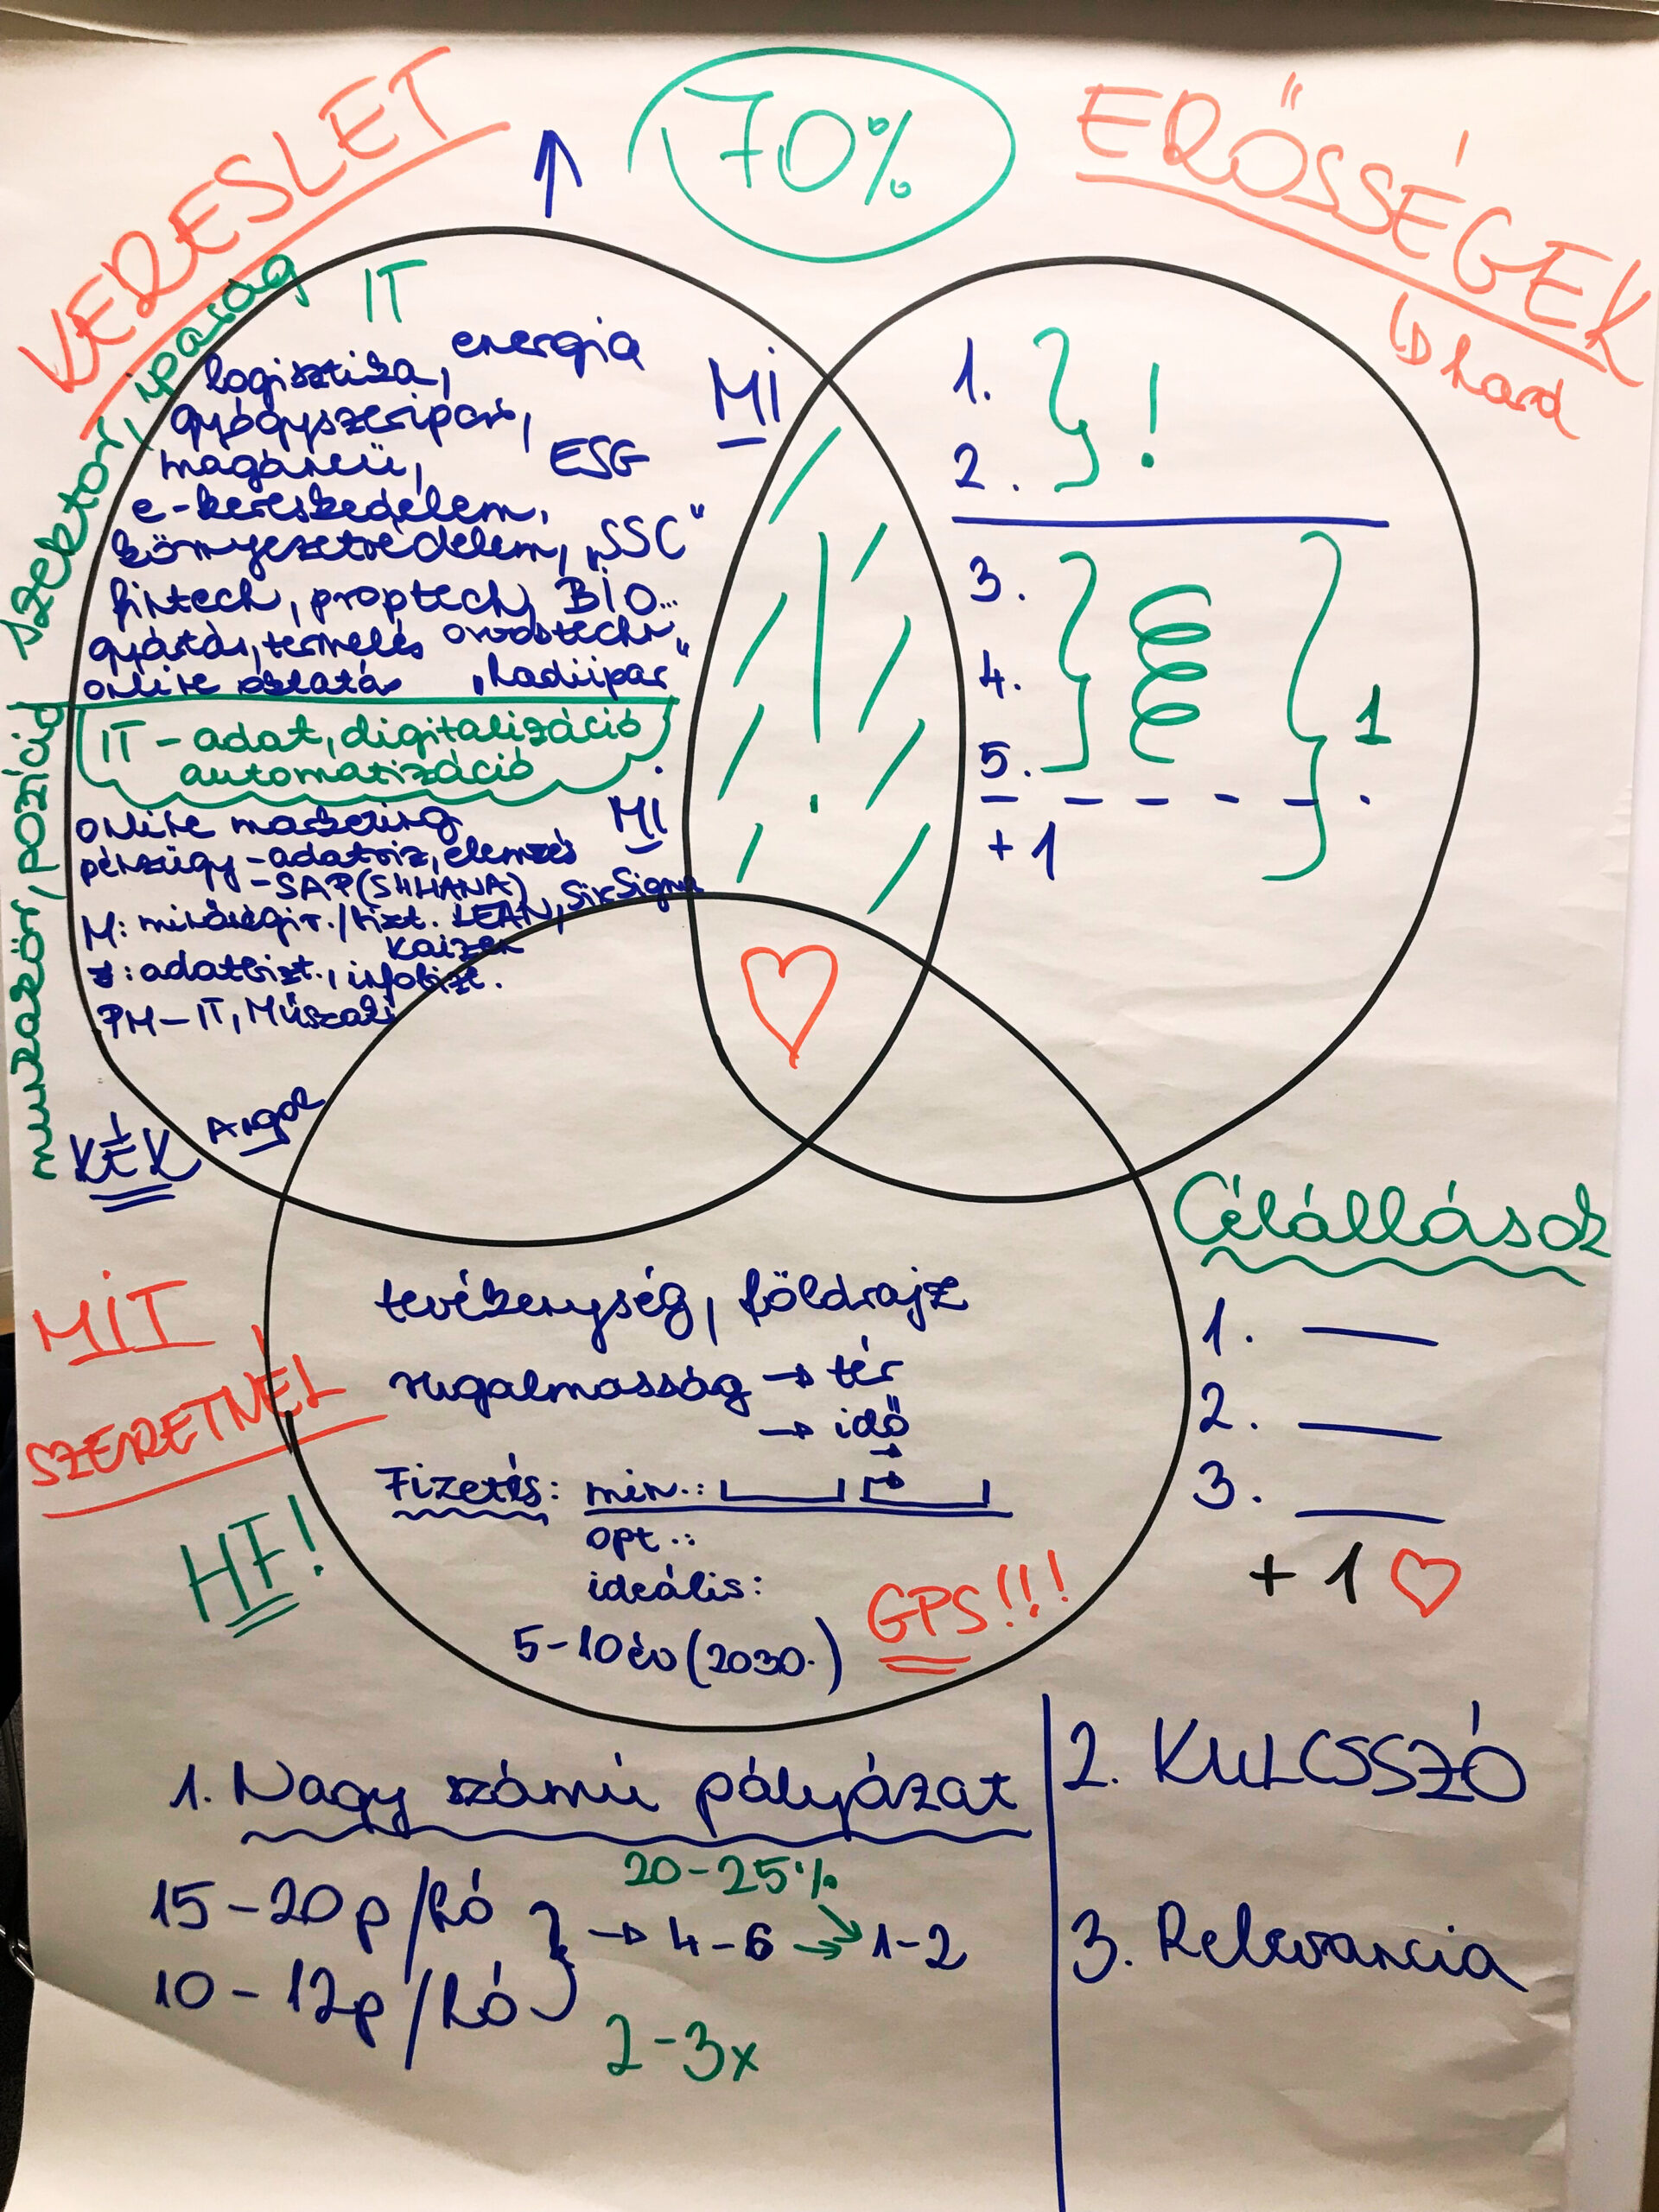 70%
KERESLET
ERŐSSÉGEK
↳ hard
szektor, iparág
IT
energia
logisztika,
gyógyszeripar,
MI
magáneü,
ESG
e-kereskedelem,
környezetvédelem, „SSC"
fintech, proptech, BIO...
gyártás, termelés
orvostechn.
online oktatás
„hadiipar"
munkakör, pozíció
IT - adat, digitalizáció
automatizáció
online marketing
MI
pénzügy - adatviz, elemzés
- SAP (S4HANA)
M: minőségir./bizt. LEAN, SixSigma
Kaizen
adatbizt., infobizt.
PM - IT, Műszaki
KÉK
Angol
1.
2.
!
3.
4.
5.
1
+1
MIT
SZERETNÉL
HF!
tevékenység, földrajz
rugalmasság → tér
→ idő
Fizetés: min.:
opt.:
ideális:
5-10 év (2030.)
GPS!!!
Célállások
1.
2.
3.
+ 1 ♡
1. Nagy számú pályázat
20-25%
15-20p/hó
→ 4-6 → 1-2
10-12p/hó
2-3x
2. KULCSSZÓ
3. Relevancia